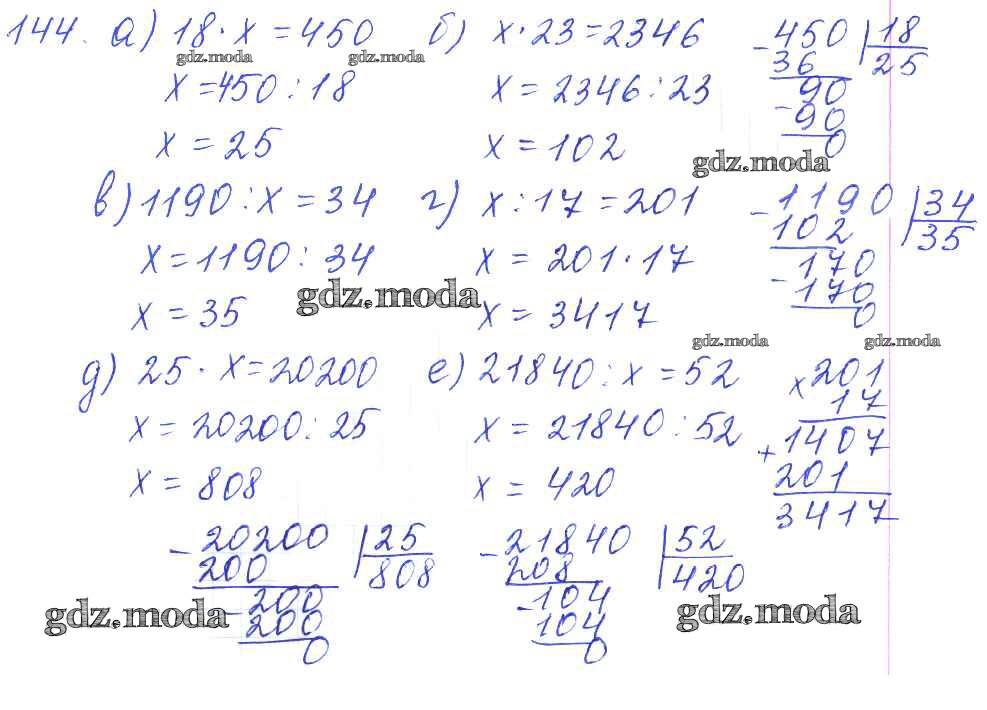 144. а) 18 · x = 450 б) x · 23 = 2346
x = 450 : 18 x = 2346 : 23
x = 25 x = 102
в) 1190 : x = 34 г) x : 17 = 201
x = 1190 : 34 x = 201 · 17
x = 35 x = 3417
д) 25 · x = 20200 е) 21840 : x = 52
x = 20200 : 25 x = 21840 : 52
x = 808 x = 420
- 450 | 18
36 25
- 90
90
0
- 1190 | 34
102 35
- 170
170
0
x 201
17
+ 1407
201
3417
- 20200 | 25
200 808
- 200
200
0
- 21840 | 52
208 420
- 104
104
0
gdz.moda
gdz.moda
gdz.moda
gdz.moda
gdz.moda
gdz.moda
gdz.moda
gdz.moda